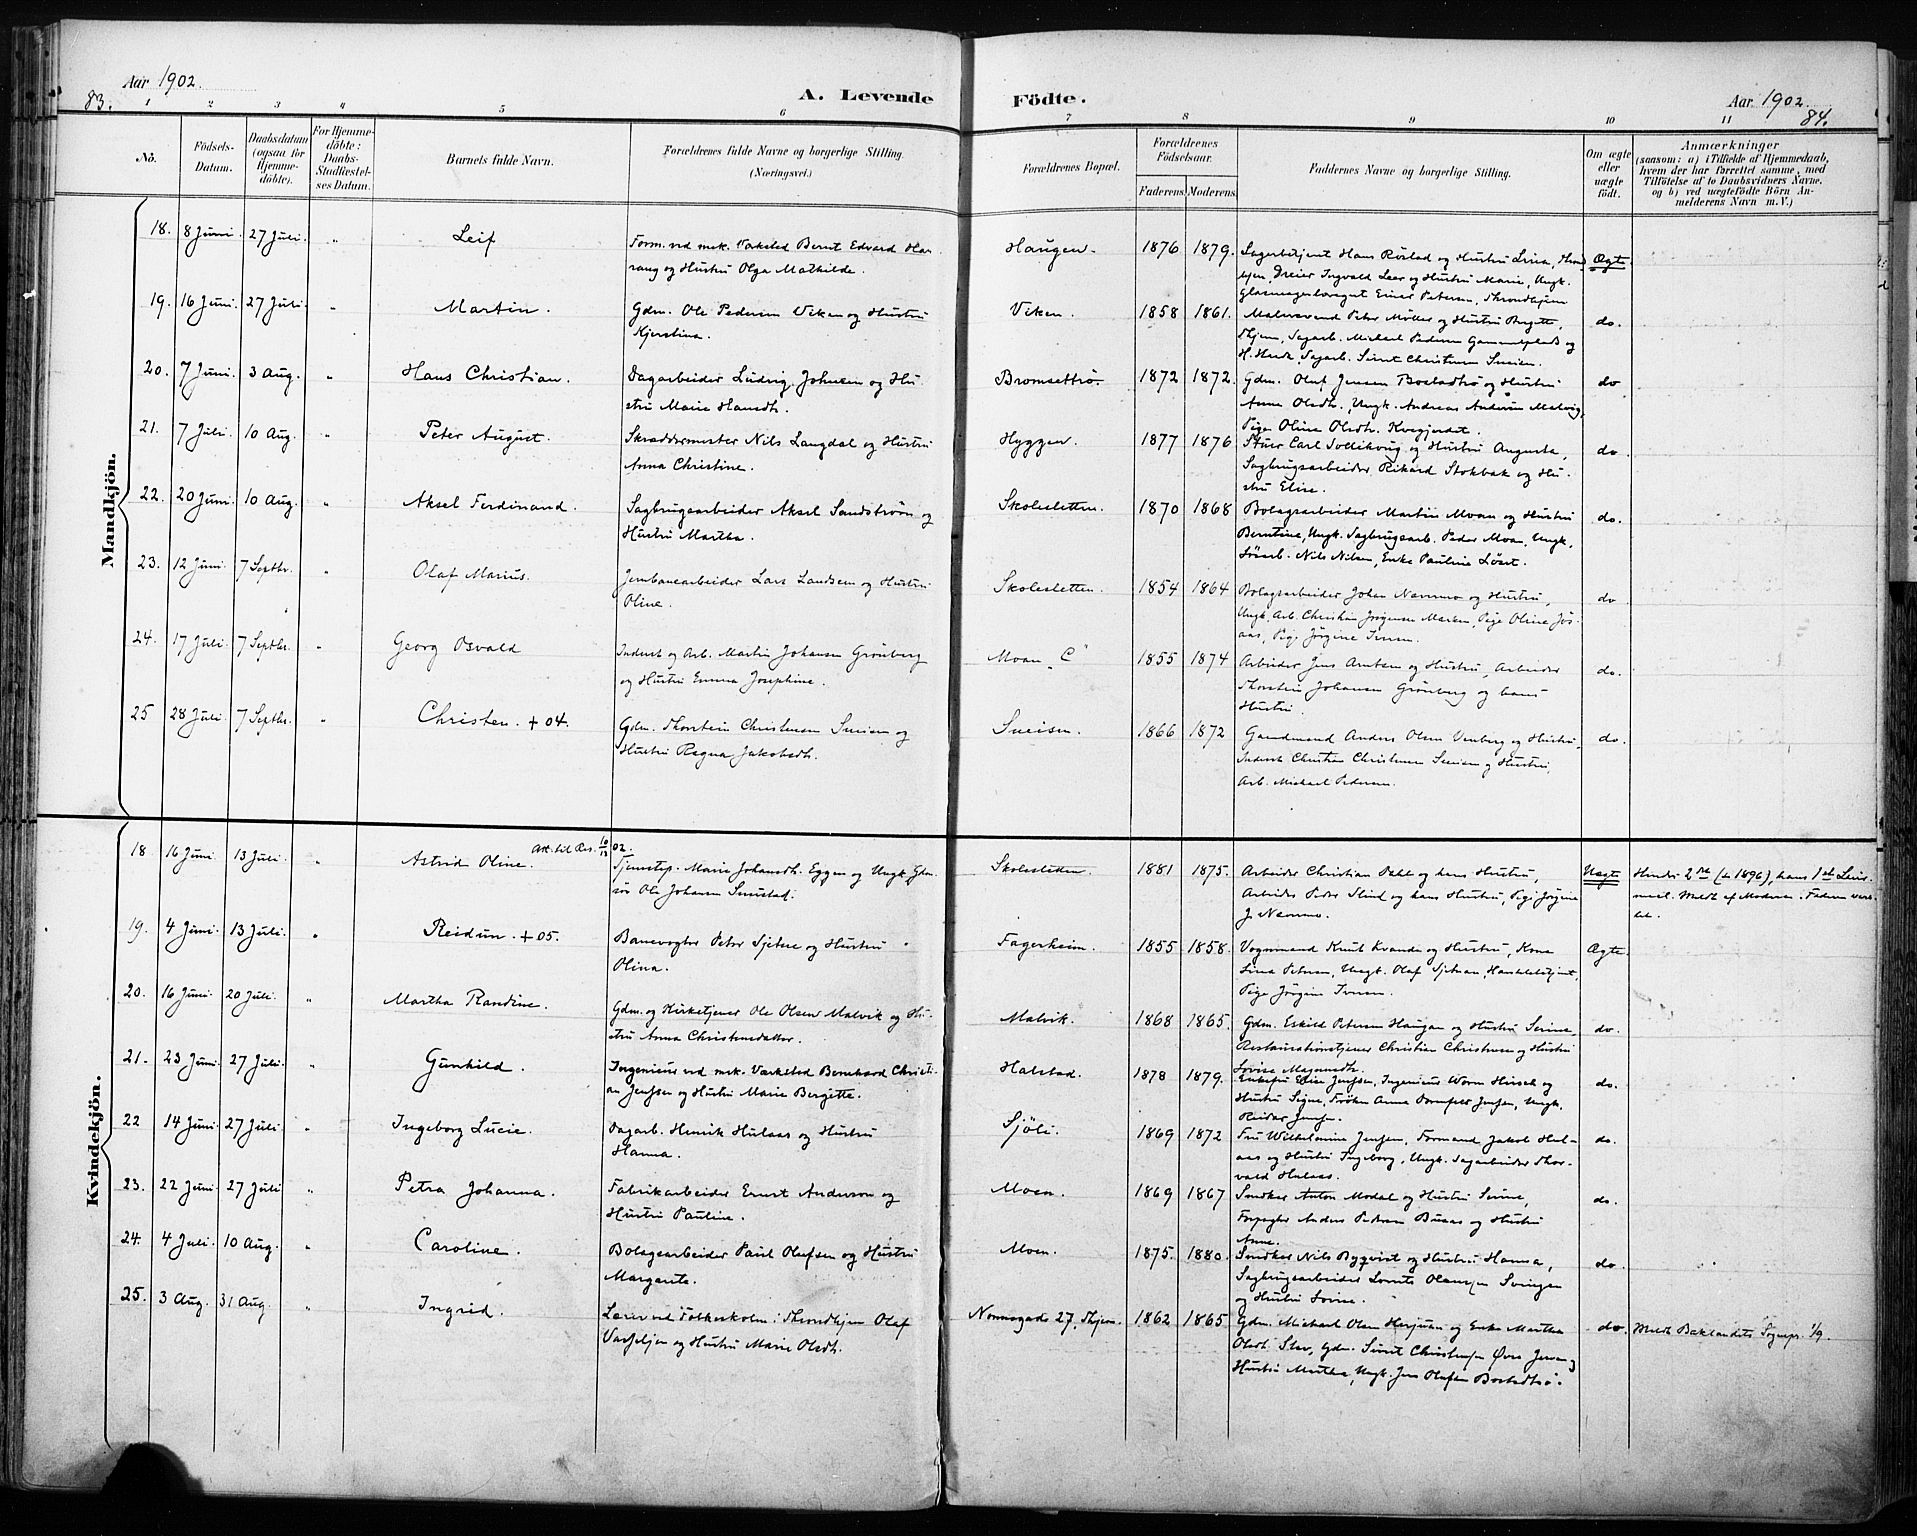 Aar 1902.
83.
A. Levende
Födte.
Aar 1902.
84.
1 2 3 4 5 6 7 8 9 10 11
No.
Födsels-
Datum.
Daabsdatum
(ogsaa for
Hjemme-
döbte).
For Hjemme-
döbte:
Daabs-
Stadfæstel-
ses Datum.
Barnets fulde Navn.
Forældrenes fulde Navne og borgerlige Stilling.
(Næringsvei.)
Forældrenes Bopæl.
Forældrenes
Födselsaar.
Faderens.
Moderens.
Faddernes Navne og borgerlige Stilling.
Om ægte
eller
uægte
födt.
Anmærkninger
(saasom: a) i Tilfælde af Hjemmedaab,
hvem der har forrettet samme, med
Tilföielse af to Daabsvidners Navne,
og b) ved uægtefödte Börn An-
melderens Navn m. V.)
Mandkjön.
18. 8 Juni. 27 Juli. " Leif
Form. ved mek. Værksted Bernt Edvard Ha-
rang og Hustru Olga Mathilde.
Haugen. 1876 1879.
Sagarbejent Hans Röstad og Hustru Lina,
Dreier Ingvald Leer og Hustru Marie, Ungk.
Einar Petersen, Throndhjem
Ægte
19. 16 Juni. 27 Juli. " Martin.
Gdm. Ole Pedersen Viken og Hustru
Kjerstina.
Viken. 1858 1861.
Malersvend Peter Möller og Hustru Birgitte,
Thjem, Sagarb. Michael Pedersen Gammelplads og
H. Sagarb. Sivert Christensen Sneisen.
do.
20. 7 Juni. 3 Aug. " Hans Christian.
Dagarbeider Ludvig Johnsen og Hu-
stru Marie Hansdt.
Bromsettrö. 1872 1872.
Gdm. Oluf Jensen Bostadtrö og Hustru
Anna Olsdt., Ungk. Andreas Andersen Malvig,
Pige Oline Olsdt. Kvegjerdet.
do
21. 7 Juli. 10 Aug. " Peter August.
Skræddermester Nils Langdal og Hustru
Anna Christine.
Hyggen. 1877 1876
Carl Sollikoug og Hustru Augusta,
Sagbrugsarbeider Rikard Stokbak og Hu-
stru Elise.
do.
22. 20 Juni. 10 Aug. " Aksel Ferdinand.
Sagbrugsarbeider Aksel Sandström og
Hustru Martha.
Skolesletten. 1870 1868
Bolagsarbeider Martin Moan og Hustru
Berntine, Ungk. Sagbrugsarb. Peder Moan, Ungk.
Nils Nilsen, Enke Pauline
do.
23. 12 Juni. 7 Septbr. " Olaf Marius.
Jernbanearbeider Lars Landsem og Hustru
Oline.
Skolesletten. 1854 1864
Bolagsarbeider Johan Navnmo og Hustru,
Ungk. Arb. Christian Jörgensen Pige Oline
Pige Jörgine Iversen.
do
24. 17 Juli. 7 Septbr. " Georg Osvald
Inderst og Arb. Martin Johansen Grönberg
og Hustru Emma Josephine.
Moan "C" 1855 1874
Arbeider Jens Arntsen og Hustru, Arbeider
Thorstein Johansen Grönberg og hans
Hustru.
do.
25 28 Juli. 7 Septbr. " Christen. + 04.
Gdm. Thorstein Christensen Sneisen og
Hustru Ragna Jakobsdt.
Sneisen. 1866 1872
Gaardmand Anders Olsen Venberg og Hustru,
Inderst Christian Christensen Sneisen og Hustru,
Arb. Michael Pedersen.
do.
Kvindekjön.
18 16 Juni. 13 Juli. " Astrid Oline.
Att. til Res. 10/12 02.
Tjenstep. Marie Johansdt. Eggen og Ungk. Gdm.
sön Ole Johansen Smistad.
Skolesletten. 1881 1875.
Arbeider Christian Dahl og hans Hustru,
Arbeider Peder Slind og hans Hustru, Pige Jörgine
J. Navnmo.
Uægte
Hendes 2det (+ 1896), hans 1ste Leier-
maal. Meldt af Moderen. Faderen
19. 4 Juni. 13 Juli. " Reidun. + 05.
Banevogter Peter Sjetne og Hustru
Olina.
Fagerheim. 1855 1858.
Vognmand Knut Kvande og Hustru, Kone
Lina Petersen, Ungk. Olaf Sjetnan, Handelsbetjent,
Pige Jörgine Iversen.
Ægte.
20. 16 Juni. 20 Juli. " Martha Randine.
Gdm. og Kirketjener Ole Olsen Malvik og Hu-
stru Anna Christensdatter.
Malvik. 1868 1865.
Gdm. Eskild Petersen Haugan og Hustru Serine,
Restaurationstjener Christian Christensen og Hustru
Lovise Magnusdt.
do.
21. 23 Juni 27 Juli. " Gunhild.
Ingenieur ved mek. Værksted Bernhard Christi-
an Jenssen og Hustru Marie Bergitte.
Halstad. 1878 1879.
Enkefru Elise Jenssen, Ingenieur Worm Hirsch og
Hustru Signe, Fröken Anna Jenssen, Ungk.
Reidar Jenssen.
do.
22 14 Juni 27 Juli " Ingeborg Lucie.
Dagarb. Henrik Hulaas og Hustru
Hanna.
Sjöli. 1869 1872
Fru Wilhelmine Jenssen, Formand Jakob Hul-
aas og Hustru Ingeborg, Ungk. Sagarbeider Thor-
vald Hulaas.
do.
23. 22 Juni 27 Juli " Petra Johanna.
Fabrikarbeider Ernst Anderson og
Hustru Pauline.
Moen. 1869 1867
Snedker Anton Modal og Hustru Serine,
Forpagter Anders Pedersen Buaas og Hustru
Anne.
do.
24. 4 Juli. 10 Aug. " Caroline.
Bolagsarbeider Paul Olufsen og Hustru
Margareta.
Moen. 1875. 1880.
Snedker Nils Bygqvist og Hustru Hanna,
Sagbrugsarbeider Lorents Olausen Svingen
og Hustru Lovise.
do.
25. 3 Aug. 31 Aug. " Ingrid.
Lærer ved Folkeskolen i Throndhjem Olaf
Vasseljen og Hustru Marie Olsdt.
Nonnegade 27, Thjem. 1862 1865
Gdm. Michael Olsen Herjuan og Enke Martha
Olsdt. Stav, Gdm. Sivert Christensen Övre Jervan og
Hustru Martha, Ungk. Jens Olufsen Bostadtrö.
do.
Meldt Baklandets Sognepr. 1/9.